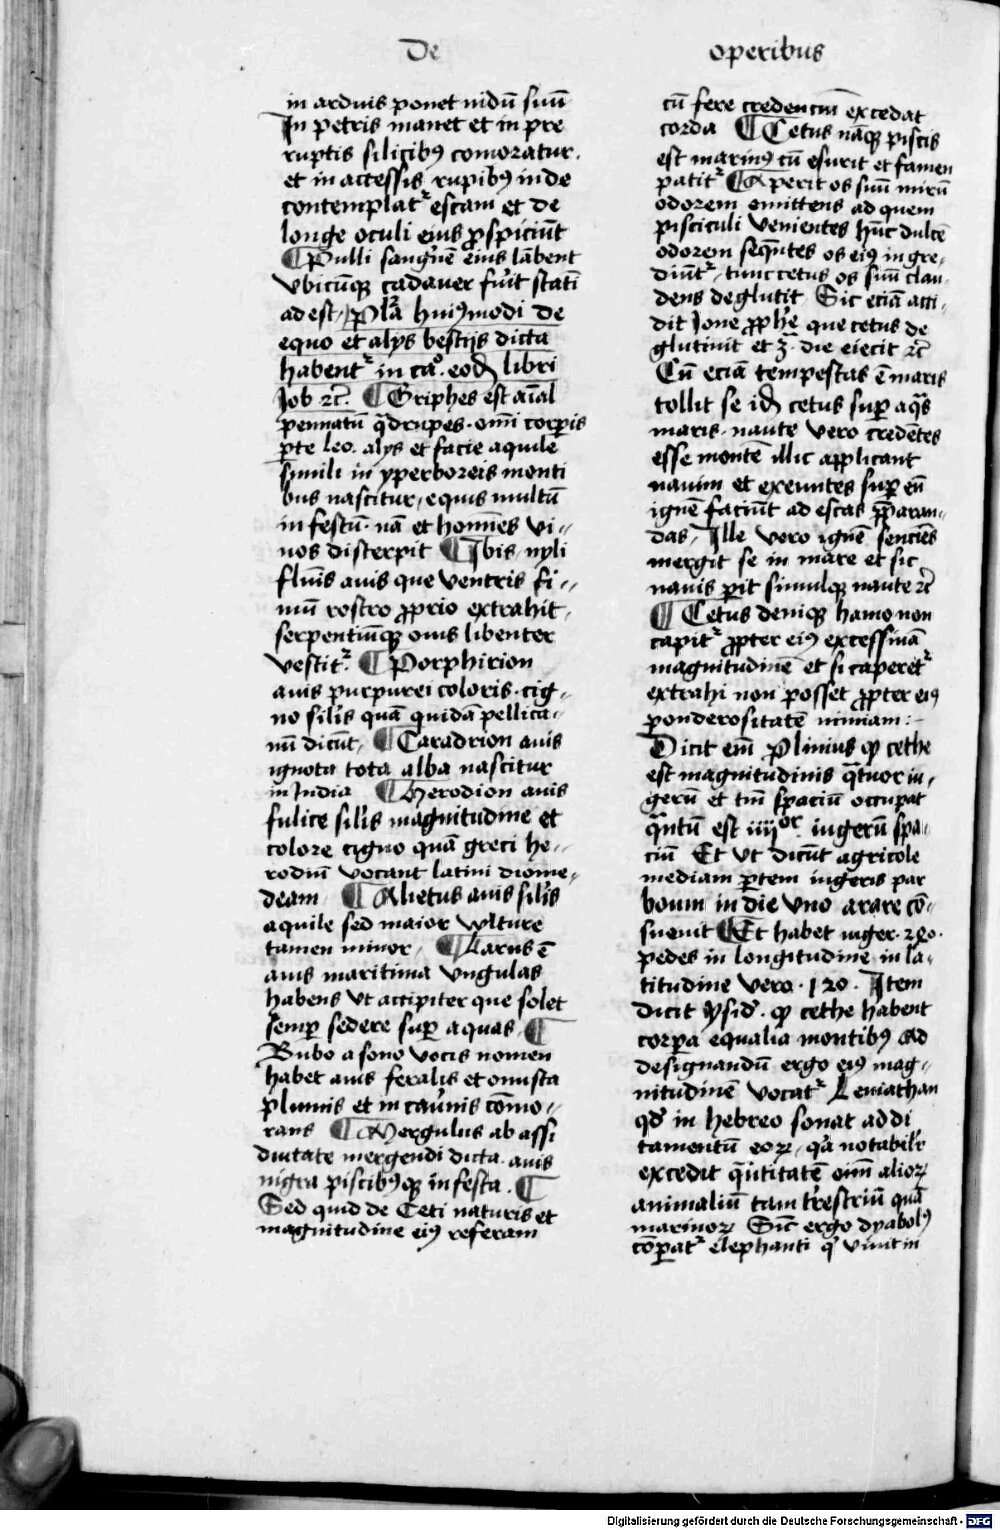 De operibus
in arduis ponet nidū suū
In petris manet et in pre
ruptis silicibꝰ comoratur.
et in accessis rupibꝰ inde
contemplatᷣ escam et de
longe oculi eius ꝓspiciūt
¶ Pulli sangͥnē eius lābent
vbicūqꝫ cadauer fuͥit stati
adest, Plᷓa huiꝰmodi de
equo et alijs bestijs dicta
habentᷣ in caᵒ. eodē libri
Job ⁊cͨ. ¶ Griphes est aīal
pennatū qͣdrupes. omī corꝑis
ꝑte leo. alijs et facie aquile
simili in yperboreis monti
bus nascitur, equis multū
infestū. nā et homines vi-
uos discerpit ¶ Ibis, nyli
fluīs auis que ventris fi-
mū rostro ꝓprio extrahit,
serpentiūqꝫ ouis libenter
vescitᷣ. ¶ Porphirion
auis purpurei coloris. cig-
no silis quā quidā pellica-
nū dicūt, ¶ Caradrion auis
ignota tota alba nascitur
in India ¶ Herodion auis
fulice silis magnitudine et
colore cigno quā greci he-
rodiū vocant latini diome-
deam ¶ Alietus auis silis
aquile sed maior vulture
tamen minor, ¶ Larus ē
auis maritima vngulas
habens vt accipiter que solet
semꝑ sedere suꝑ aquas, ¶
Bubo a sono vocis nomen
habet auis feralis et onusta
plumis et in cauͥnis cōmo-
rans ¶ Mergulus ab assi
duitate mergendi dicta. auis
nigra piscibꝰqꝫ infesta. ¶
Sed quid de Ceti naturis et
magnitudine eiꝰ referam
cū fere credenciū excedat
corda ¶ Cetus nāqꝫ piscis
est marinꝰ cū esurit et famen
patitᷣ ¶ Aperit os suū mirū
odorem emittens ad quem
pisciculi venientes hūc dulcē
odorem seqūtes os eiꝰ ingre-
diūtᷣ, tunc cetus os suū clau-
dens deglutit Sic eciā acci-
dit Jone ꝓphē que cetus de
glutiuit et 3ᷓ. die eiecit ⁊cͨ
Cū eciā tempestas ē maris
tollit se idē cetus suꝑ aqͣs
maris. naute vero credētes
esse montē illic applicant
nauim et exeuntes suꝑ eū
ignē faciūt ad escas p̄paran-
das, Ille vero ignē senciēs
mergit se in mare et sic
nauis ꝑit simulqꝫ naute ⁊cͨ
¶ Cetus deniqꝫ hamo non
capitᷣ ꝓpter eiꝰ excessiuā
magnitudinē et si caperetᷣ
extrahi non posset ꝓpter eiꝰ
ponderositatē nimiam :-
Dicit em̄ Plinius qꝫ cethe
est magnitudinis qͣtuor iu-
gerū et tm̄ spaciū occupat
qͣntū est iiijᵒʳ. iugerū spa-
ciū Et vt dicūt agricole
mediam ꝑtem iugeris par
boum in die vno arare cō-
sueuit ¶ Et habet iuger. 240.
pedes in longitudine, in la-
titudine vero. 120. Item
dicit ysid̓. qꝫ cethe habent
corꝑa equalia montibꝰ Ad
designandū ergo eiꝰ mag-
nitudinē vocatᷣ Leuiathan
qd̓ in hebreo sonat addi
tamentū eoꝝ, qͣ notabilr̄
excedit qͣntitatē oīm alioꝝ
animaliū tam tr̄estriū quā
marinoꝝ Sicͨ ergo dyabolꝰ
cōꝑatᷣ elephanti qͥ viuit in
Digitalisierung gefördert durch die Deutsche Forschungsgemeinschaft - DFG